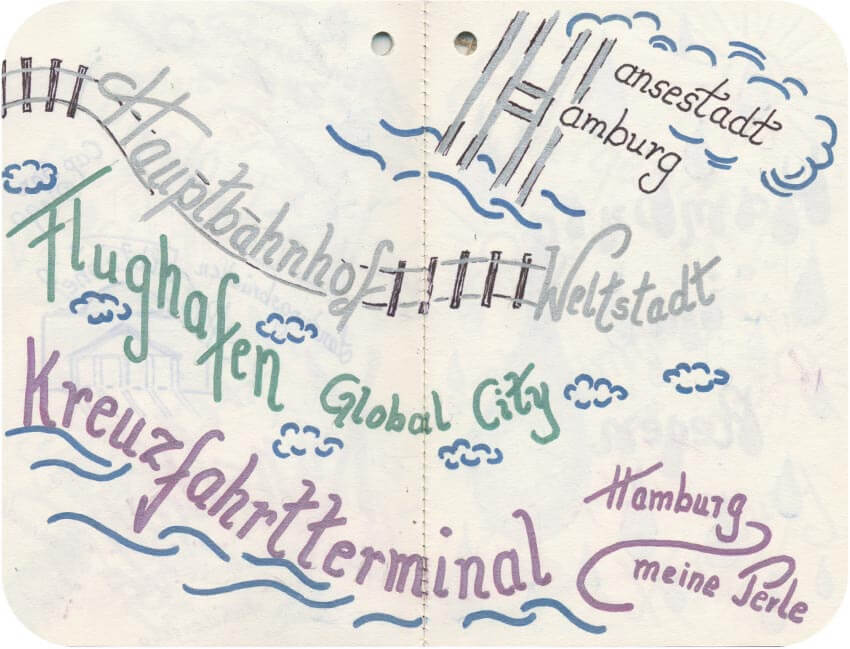 Hansestadt
Hamburg
Hauptbahnhof
Weltstadt
Flughafen
Global City
Kreuzfahrtterminal
Hamburg
meine Perle